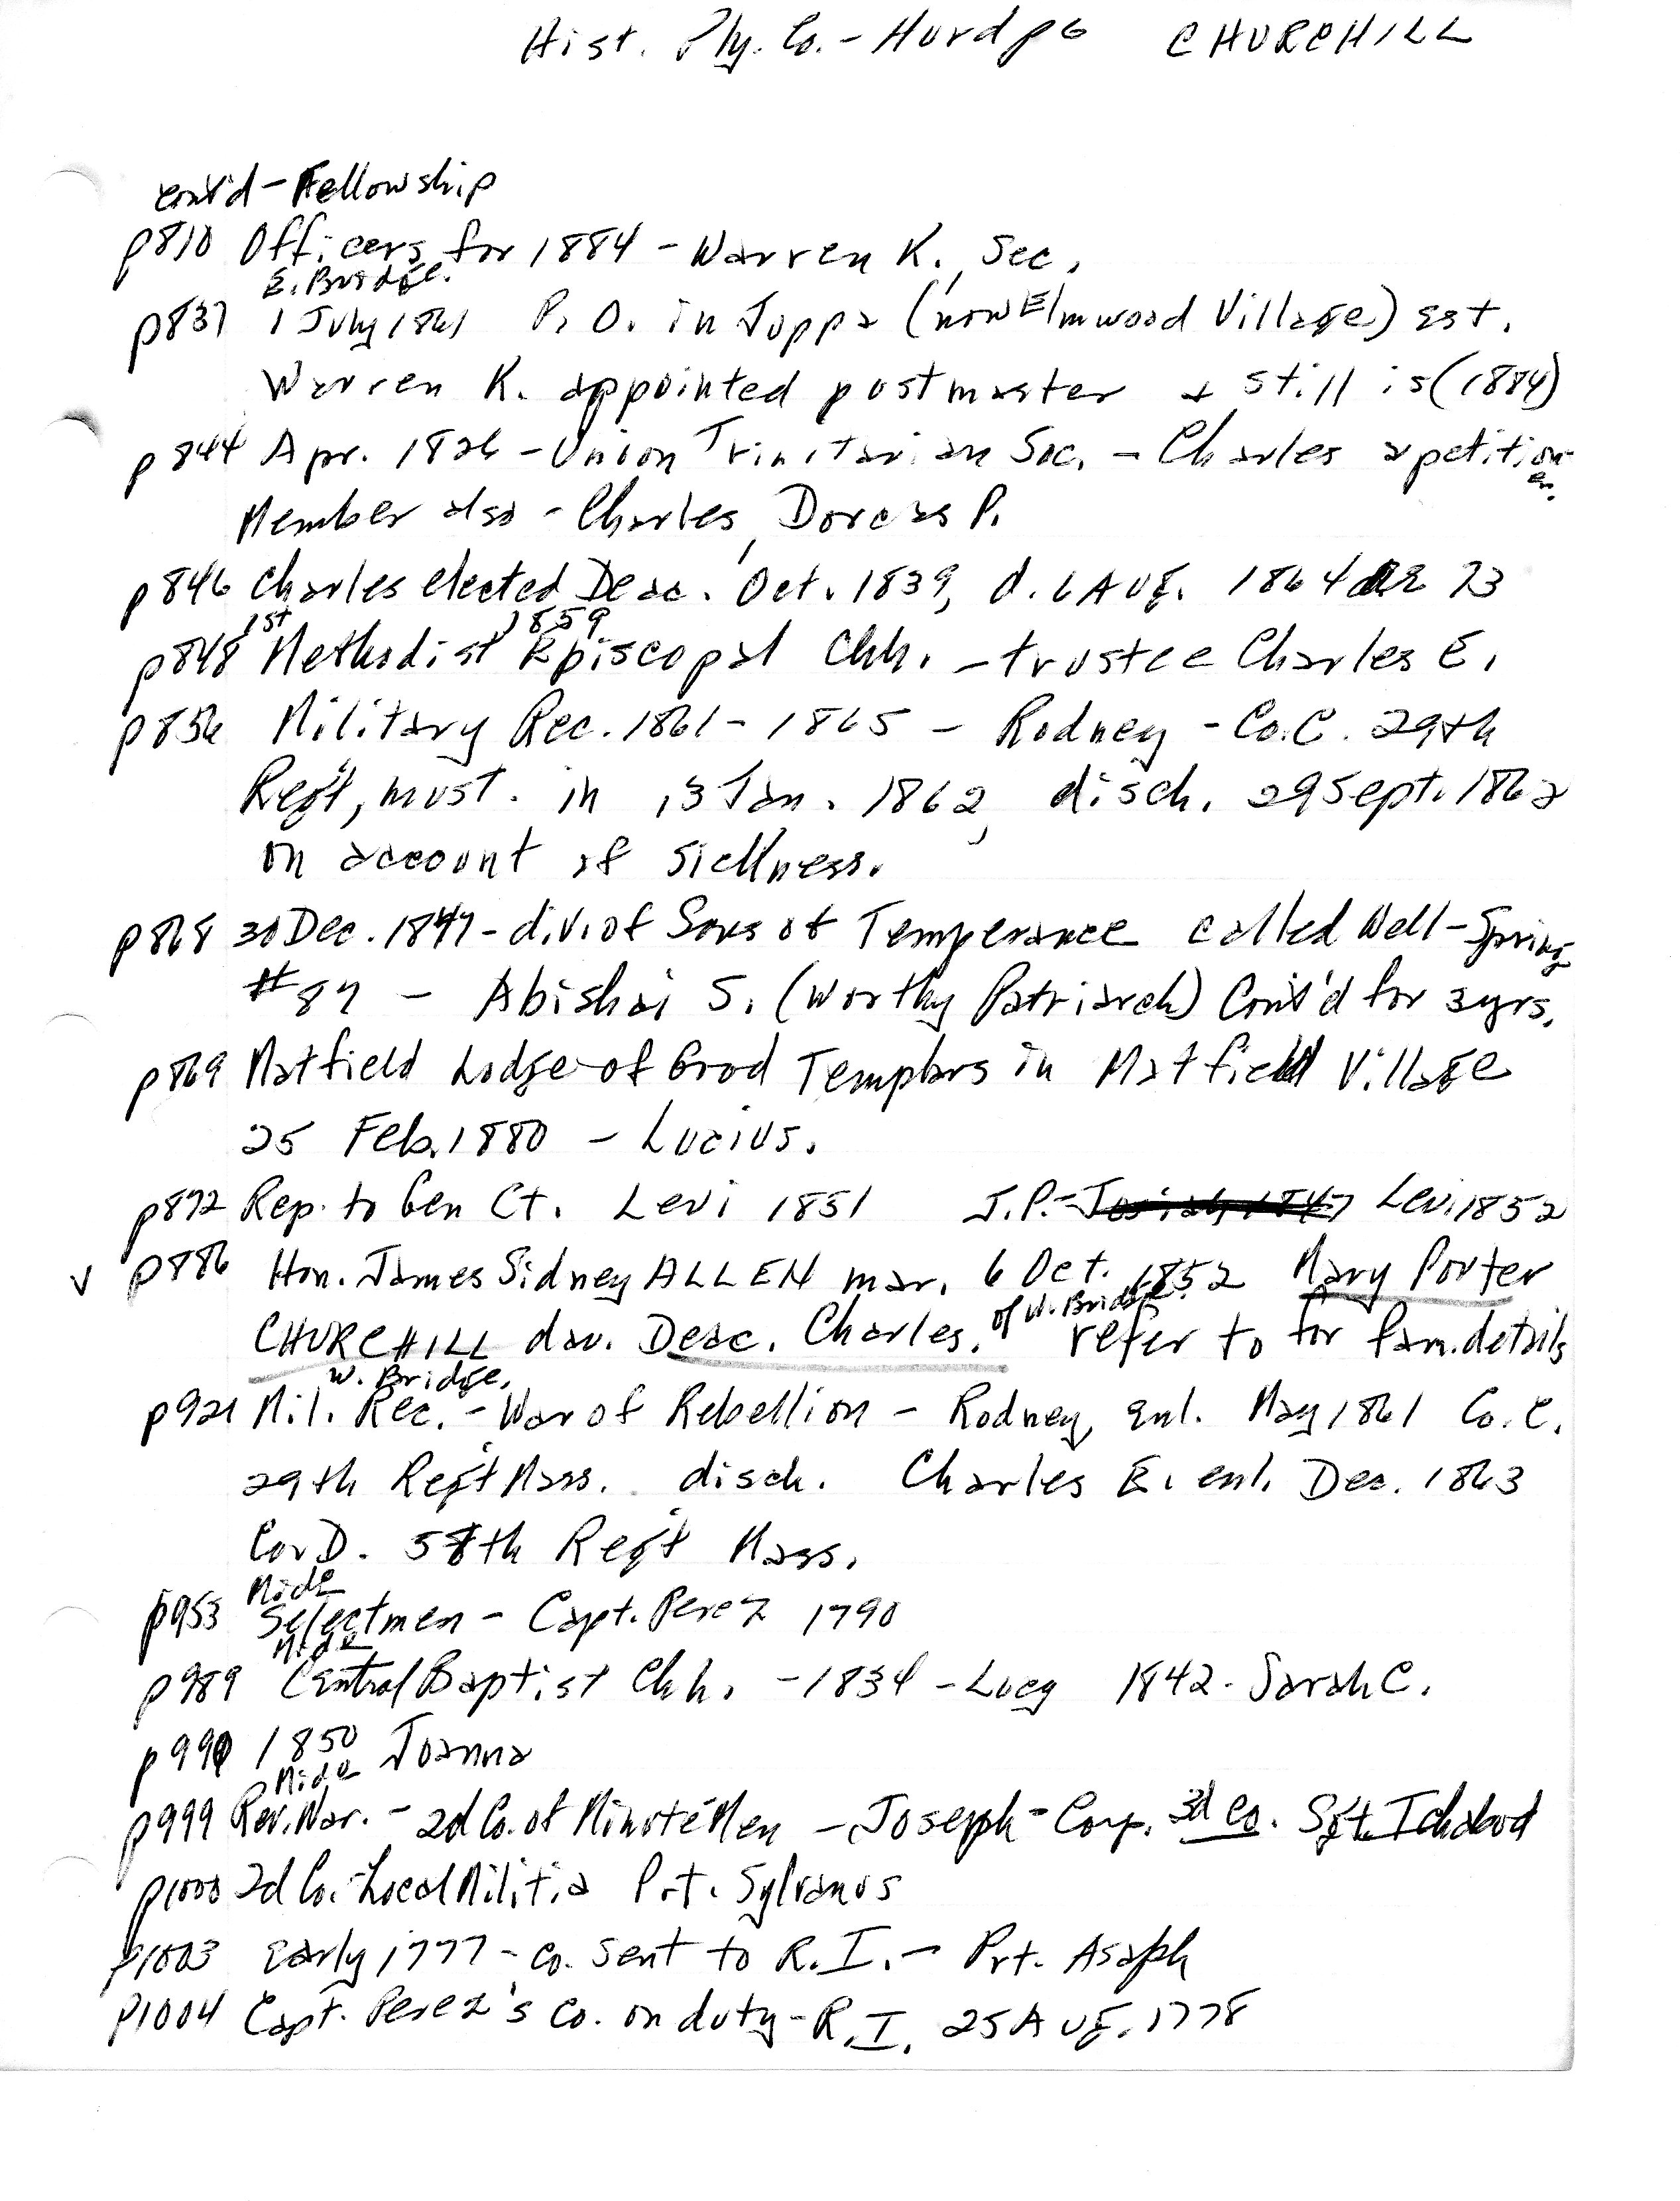 Hist. Ply. Co. - Hurd p6 CHURCHILL
cont'd - Fellowship
p810 Officers for 1884 - Warren K., Sec.
E. Bridge.
p837 1 July 1861 P.O. in Joppa (now Elmwood Village) est.
Warren K. appointed postmaster + still is (1884)
p844 Apr. 1826 - Union Trinitarian Soc. - Charles a petition-
er.
Member also - Charles, Dorcas P.
p846 Charles elected Deac. Oct. 1839, d. 6 Aug. 1864 ae 73
1st 1859
p848 Methodist Episcopal Chh. - trustee Charles E.
p856 Military Rec. 1861 - 1865 - Rodney - Co. C. 29th
Reg't, must. in 13 Jan. 1862, disch. 29 Sept. 1862
on account of sickness.
p868 30 Dec. 1847 - div. of Sons of Temperance called Well-Spring
#87 - Abishai S. (Worthy Patriarch) Cont'd for 3 yrs.
p869 Matfield Lodge of Good Templars in Matfield Village
25 Feb. 1880 - Lucius.
p872 Rep. to Gen Ct. Levi 1851 J.P. - Josiah 1847 Levi 1852
v p886 Hon. James Sidney ALLEN mar. 6 Oct. 1852 Mary Porter
CHURCHILL dau. Deac. Charles. of W. Bridge. refer to for fam. details
W. Bridge.
p921 Mil. Rec. - War of Rebellion - Rodney, enl. May 1861 Co. C.
29th Reg't Mass. disch. Charles E. enl. Dec. 1863
Co D. 58th Reg't Mass.
Midb
p953 Selectmen - Capt. Perez 1790
Midb
p989 Central Baptist Chh. - 1834 - Lucy 1842 - Sarah C.
p990 1850 Joanna
Midb
p999 Rev. War. - 2d Co. of Minute Men - Joseph - Corp. 3d Co. Sgt. Ichabod
p1000 2d Co. Local Militia Prt. Sylvanus
p1003 early 1777 - Co. sent to R.I. - Prt. Asaph
p1004 Capt. Perez's Co. on duty - R.I. 25 Aug. 1778